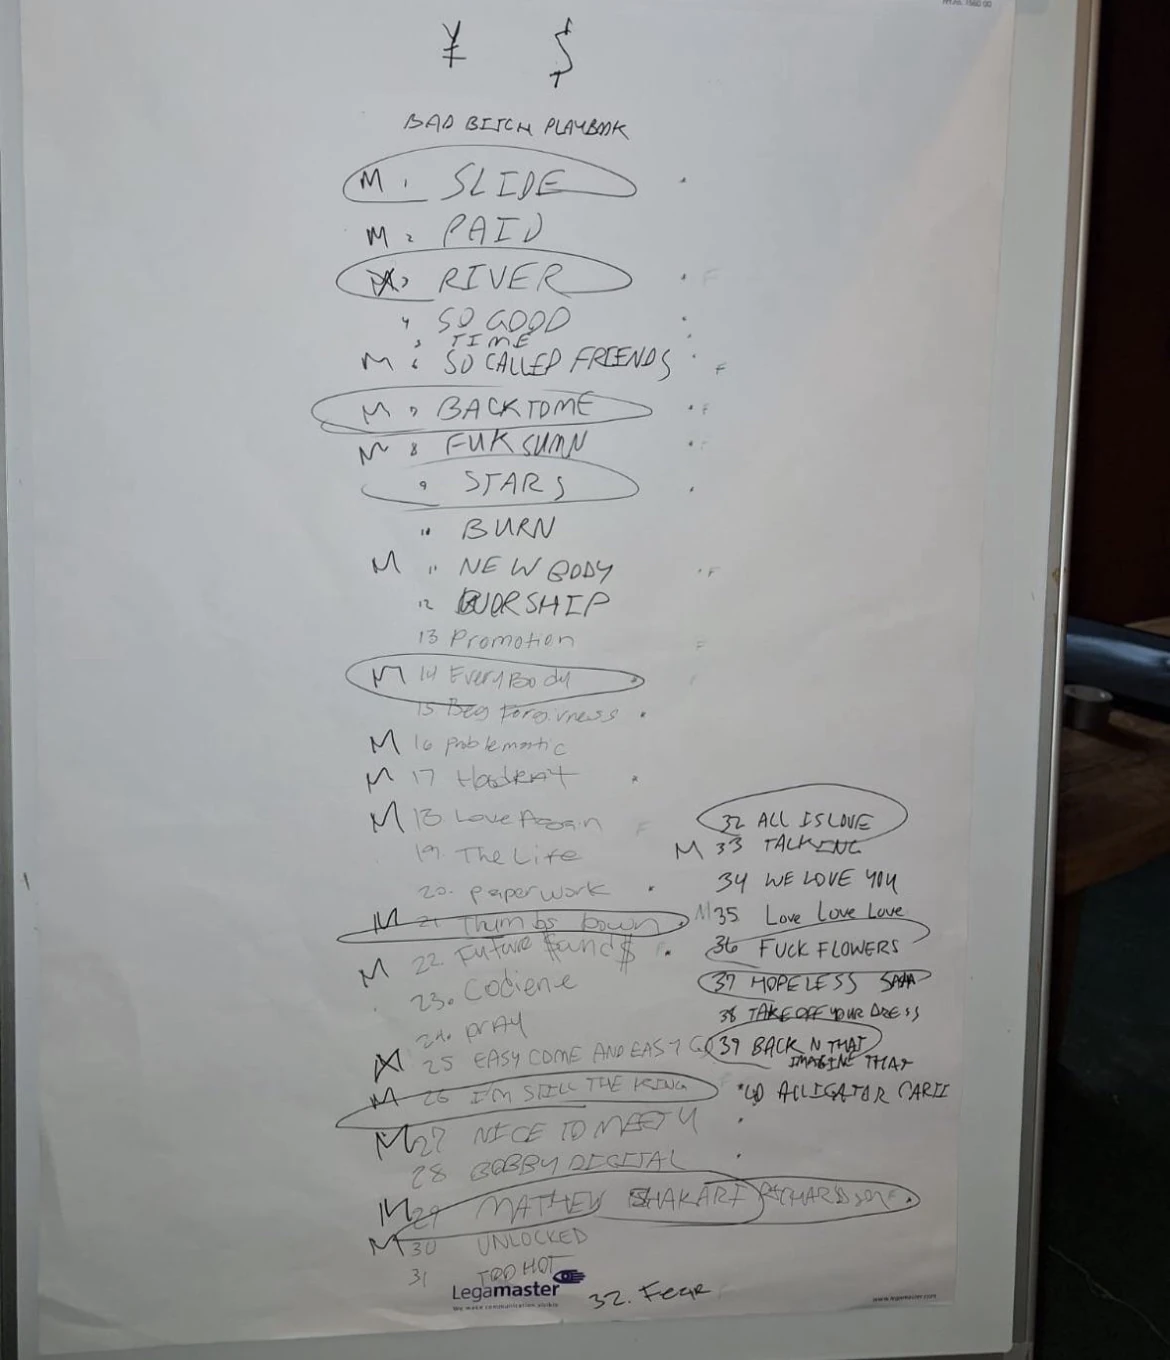 ¥ $
BAD BITCH PLAYBOOK
M 1 SLIDE
M 2 PAID
M 3 RIVER F
4 SO GOOD
5 TIME
M 6 SO CALLED FRIENDS F
M 7 BACK TO ME F
M 8 FUK SUMN F
9 STARS
10 BURN
M 11 NEW BODY F
12 WORSHIP
13 Promotion F
M 14 EveryBody
15 Beg forgivness
M 16 Problematic
M 17 Hoodrat
M 18 Love Again F
19. The Life
20. Paperwork
M 21 Thumbs Down
M 22. Future $and$
23. Codiene
24. Pray
M 25 EASY COME AND EASY GO
M 26 I'M STILL THE KING
M 27 NICE TO MEET U
28 BOBBY DIGITAL
M 29 MATHEW SHAKARI RICHARDSON
M 30 UNLOCKED
31 TOO HOT
32. Fear
32 ALL IS LOVE
M 33 TALKING
34 WE LOVE YOU
M 35 Love Love Love
36 FUCK FLOWERS
37 HOPELESS
38 TAKE OFF YOUR DRESS
39 BACK N THAT
IMAGINE THAT
40 ALLIGATOR
Legamaster
We make communication visible
www.legamaster.com